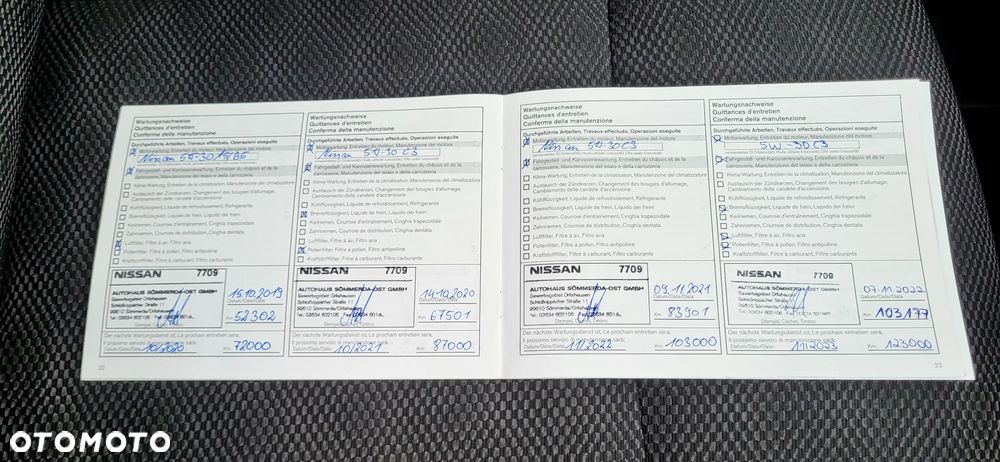 Wartungsnachweise
Quittances d'entretien
Conferma della manutenzione
Durchgeführte Arbeiten, Travaux effectués, Operazioni eseguite
Motorwartung, Entretien du moteur, Manutenzione del motore
Nissan 5W-30
Fahrgestell- und Karosseriewartung, Entretien du châssis et de la
carrosserie, Manutenzione del telaio e della carrozzeria
Klima-Wartung, Entretien de la climatisation, Manutenzione del climatizzatore
Austausch der Zündkerzen, Changement des bougies d'allumage,
Cambiamento delle candele d'accensione
Kühlflüssigkeit, Liquide de refroidissement, Refrigerante
Bremsflüssigkeit, Liquide de frein, Liquido dei freini
Keilriemen, Courroie d'entraînement, Cinghia trapezoidale
Zahnriemen, Courroie de distribution, Cinghia dentata
Luftfilter, Filtre à air, Filtro aria
Pollenfilter, Filtre à pollen, Filtro antipolline
Kraftstofffilter, Filtre à carburant, Filtro carburante
NISSAN 7709
AUTOHAUS SÖMMERDA-OST GMBH
Gewerbegebiet Orlishausen
Schloßvippacher Straße 11
99610 Sömmerda/Orlishausen
Tel.: 03634 602106
15.10.2019
Datum/Date/Data
Km: 52302
Stempel, Cachet, Timbro
Der nächste Wartungsdienst ist, Le prochain entretien sera,
Il prossimo servizio di manutenzione sarà:
Datum/Date/Data: 10/2020 Km: 72000
22
Wartungsnachweise
Quittances d'entretien
Conferma della manutenzione
Durchgeführte Arbeiten, Travaux effectués, Operazioni eseguite
Motorwartung, Entretien du moteur, Manutenzione del motore
Nissan 5W-30 C3
Fahrgestell- und Karosseriewartung, Entretien du châssis et de la
carrosserie, Manutenzione del telaio e della carrozzeria
Klima-Wartung, Entretien de la climatisation, Manutenzione del climatizzatore
Austausch der Zündkerzen, Changement des bougies d'allumage,
Cambiamento delle candele d'accensione
Kühlflüssigkeit, Liquide de refroidissement, Refrigerante
Bremsflüssigkeit, Liquide de frein, Liquido dei freini
Keilriemen, Courroie d'entraînement, Cinghia trapezoidale
Zahnriemen, Courroie de distribution, Cinghia dentata
Luftfilter, Filtre à air, Filtro aria
Pollenfilter, Filtre à pollen, Filtro antipolline
Kraftstofffilter, Filtre à carburant, Filtro carburante
NISSAN 7709
AUTOHAUS SÖMMERDA-OST GMBH
Gewerbegebiet Orlishausen
Schloßvippacher Straße 11
99610 Sömmerda/Orlishausen
Tel.: 03634 602106
14.10.2020
Datum/Date/Data
Km: 67501
Stempel, Cachet, Timbro
Der nächste Wartungsdienst ist, Le prochain entretien sera,
Il prossimo servizio di manutenzione sarà:
Datum/Date/Data: 10/2021 Km: 87000
Wartungsnachweise
Quittances d'entretien
Conferma della manutenzione
Durchgeführte Arbeiten, Travaux effectués, Operazioni eseguite
Motorwartung, Entretien du moteur, Manutenzione del motore
Nissan 5W-30 C3
Fahrgestell- und Karosseriewartung, Entretien du châssis et de la
carrosserie, Manutenzione del telaio e della carrozzeria
Klima-Wartung, Entretien de la climatisation, Manutenzione del climatizzatore
Austausch der Zündkerzen, Changement des bougies d'allumage,
Cambiamento delle candele d'accensione
Kühlflüssigkeit, Liquide de refroidissement, Refrigerante
Bremsflüssigkeit, Liquide de frein, Liquido dei freini
Keilriemen, Courroie d'entraînement, Cinghia trapezoidale
Zahnriemen, Courroie de distribution, Cinghia dentata
Luftfilter, Filtre à air, Filtro aria
Pollenfilter, Filtre à pollen, Filtro antipolline
Kraftstofffilter, Filtre à carburant, Filtro carburante
NISSAN 7709
AUTOHAUS SÖMMERDA-OST GMBH
Gewerbegebiet Orlishausen
Schloßvippacher Straße 11
99610 Sömmerda/Orlishausen
Tel.: 03634 602106
09.11.2021
Datum/Date/Data
Km: 83301
Stempel, Cachet, Timbro
Der nächste Wartungsdienst ist, Le prochain entretien sera,
Il prossimo servizio di manutenzione sarà:
Datum/Date/Data: 11/2022 Km: 103000
Wartungsnachweise
Quittances d'entretien
Conferma della manutenzione
Durchgeführte Arbeiten, Travaux effectués, Operazioni eseguite
Motorwartung, Entretien du moteur, Manutenzione del motore
5W-30 C3
Fahrgestell- und Karosseriewartung, Entretien du châssis et de la
carrosserie, Manutenzione del telaio e della carrozzeria
Klima-Wartung, Entretien de la climatisation, Manutenzione del climatizzatore
Austausch der Zündkerzen, Changement des bougies d'allumage,
Cambiamento delle candele d'accensione
Kühlflüssigkeit, Liquide de refroidissement, Refrigerante
Bremsflüssigkeit, Liquide de frein, Liquido dei freini
Keilriemen, Courroie d'entraînement, Cinghia trapezoidale
Zahnriemen, Courroie de distribution, Cinghia dentata
Luftfilter, Filtre à air, Filtro aria
Pollenfilter, Filtre à pollen, Filtro antipolline
Kraftstofffilter, Filtre à carburant, Filtro carburante
NISSAN 7709
AUTOHAUS SÖMMERDA-OST GMBH
Gewerbegebiet Orlishausen
Schloßvippacher Straße 11
07.11.2022
Datum/Date/Data
Km: 103177
Stempel, Cachet, Timbro
Der nächste Wartungsdienst ist, Le prochain entretien sera,
Il prossimo servizio di manutenzione sarà:
Datum/Date/Data: 11/2023 Km: 123000
23
OTOMOTO